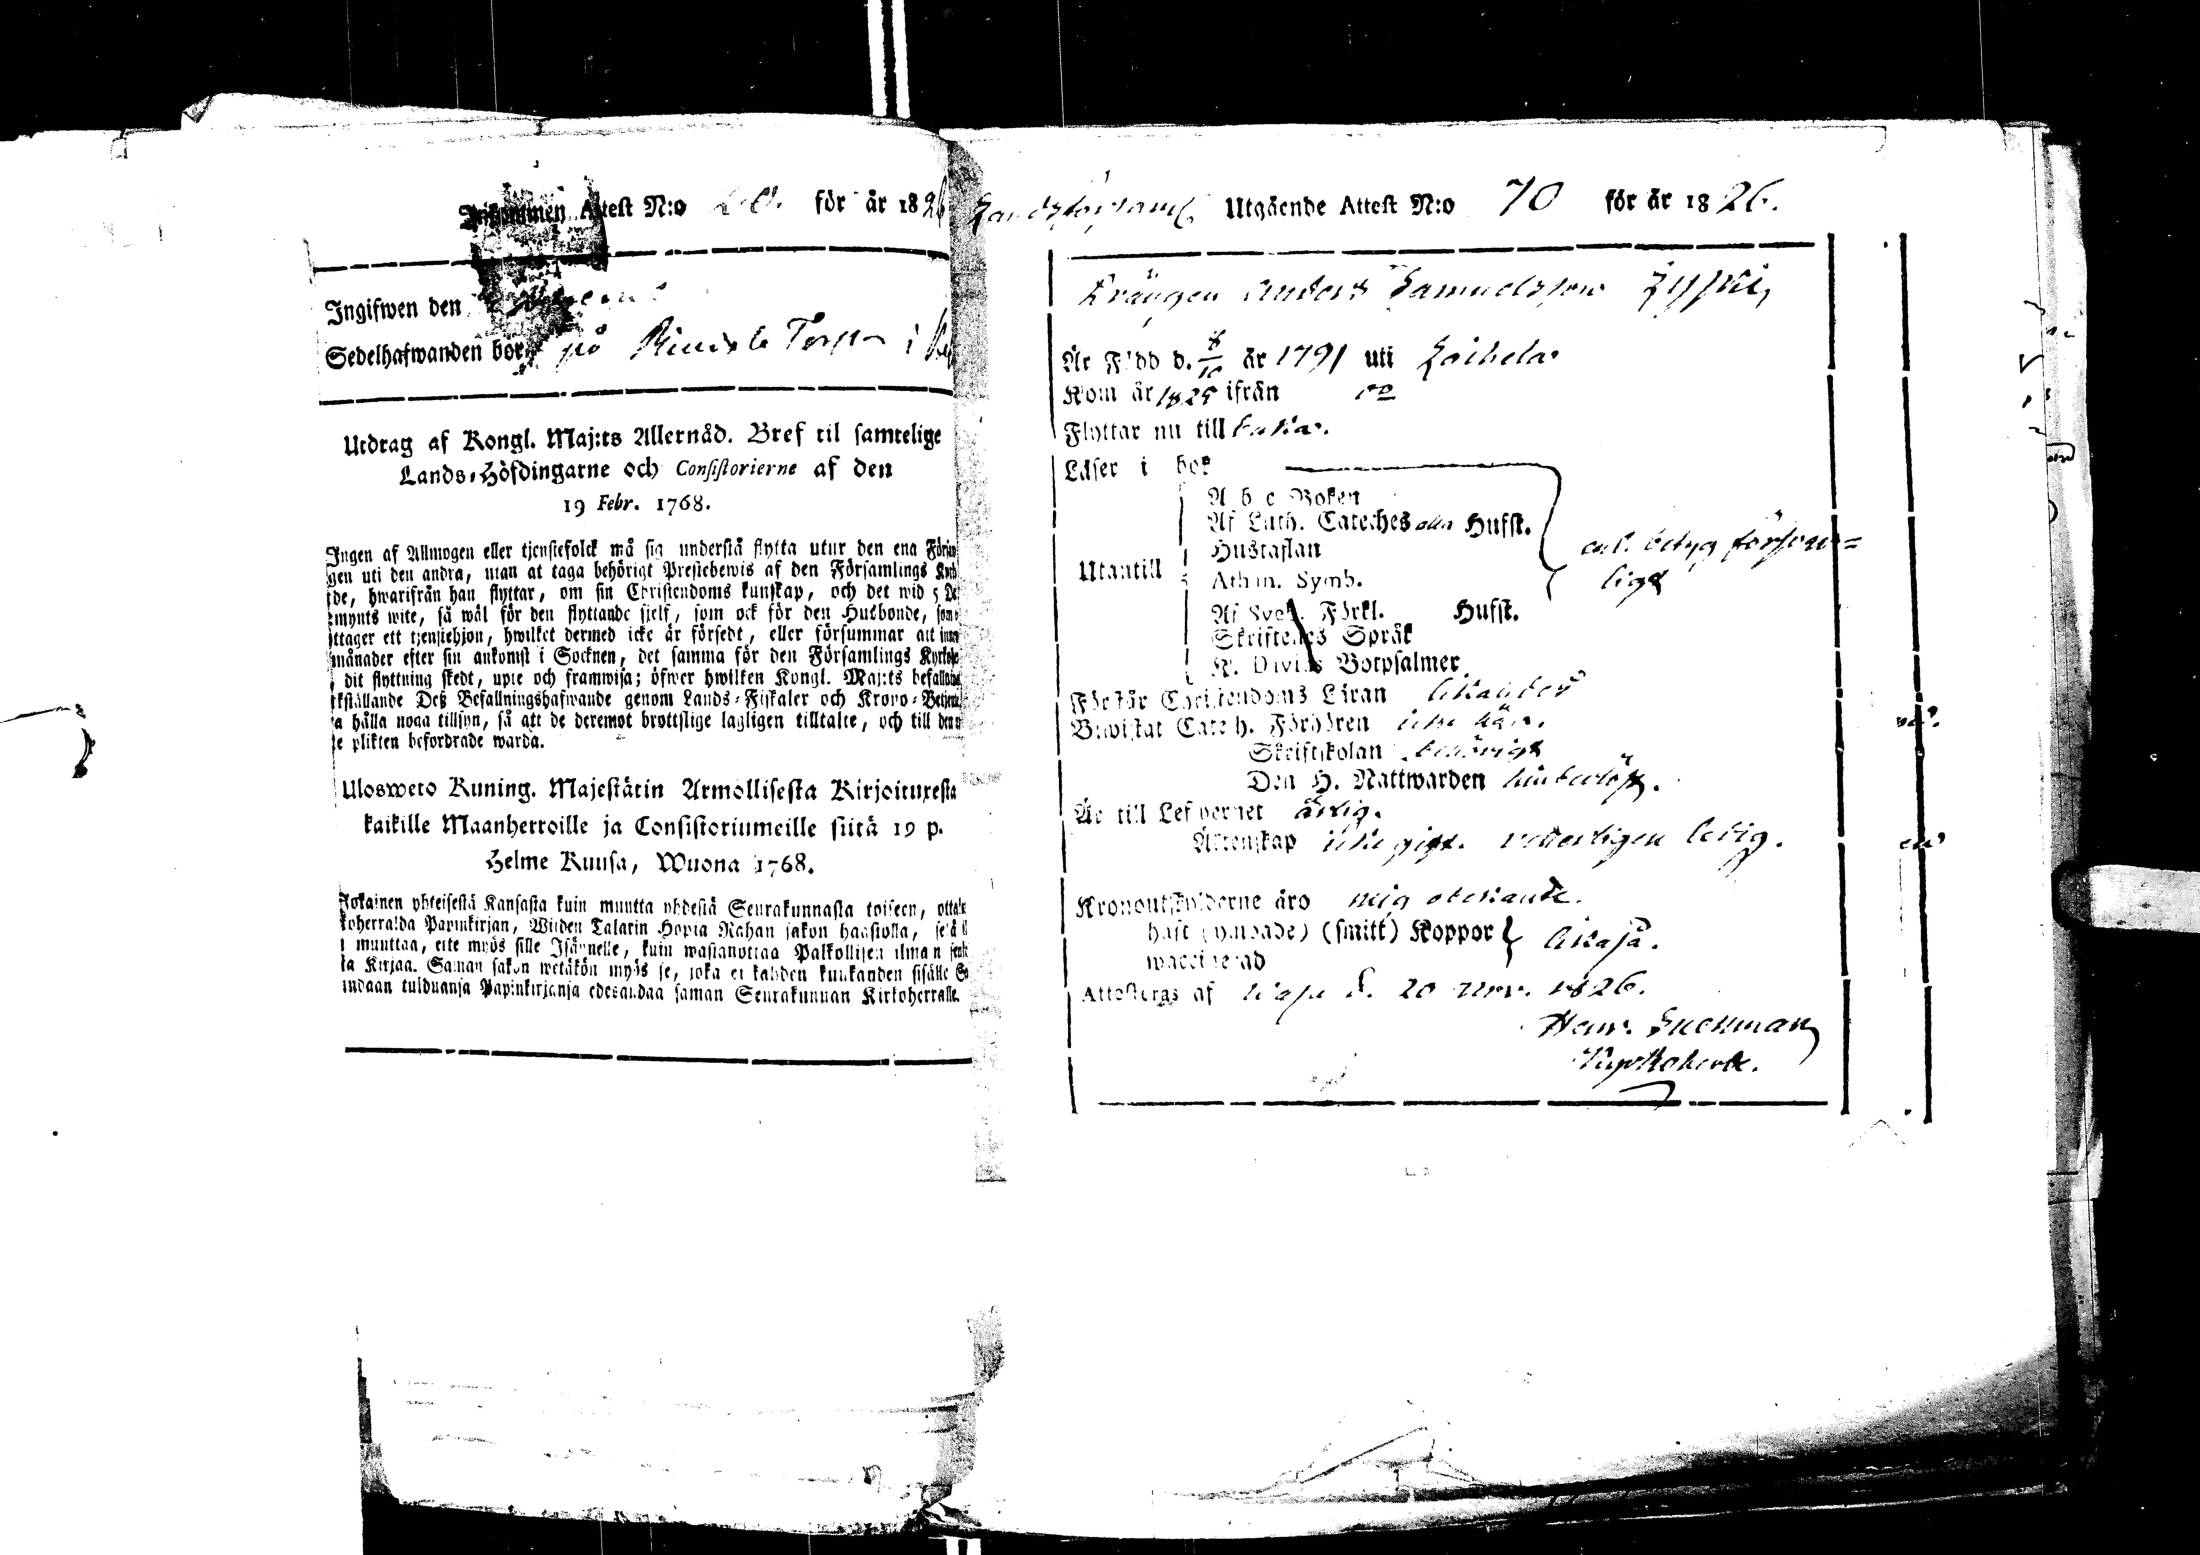 Inkommen Attest N:o 20. för år 1826
Ingifwen den
Sedelhafwanden bor på Torp i
Utdrag af Kongl. Maj:ts Allernåd. Bref til samtelige
Lands-Höfdingarne och Consistorierne af den
19 Febr. 1768.
Ingen af Allmogen eller tjenstefolck må sig understå flytta utur den ena Försam
gen uti den andra, utan at taga behörigt Prestebewis af den Församlings Kyrk
de, hwarifrån han flyttar, om sin Christendoms kunskap, och det wid 5 Da
mynts wite, så wäl för den flyttande sielf, som ock för den Husbonde, som
ttager ett tjenstehjon, hwilket dermed icke är försedt, eller försummar att innan
månader efter sin ankomst i Socknen, det samma för den Församlings Kyrkohe
dit flyttning skedt, upte och framwisa; öfwer hwilken Kongl. Maj:ts befallning
rkställande Deß Befallningshafwande genom Lands-Fiskaler och Krono-Betjente
a hålla noga tillsyn, så att de deremot brottslige lagligen tilltalte, och till denn
e plikten befordrade warda.
Ulosweto Kuning. Majestätin Armollisesta Kirjoituxesta
kaikille Maanherroille ja Consistoriumeille siitä 19 p.
Helme Kuusa, Wuona 1768.
Jokainen yhteisestä Kansasta kuin muutta yhdestä Seurakunnasta toiseen, ottak
koherralda Papinkirjan, Wiiden Talarin Hopia Rahan sakon haastolla, sekä
muuttaa, ette myös sille Isännelle, kuin wastanottaa Palkollisen ilman senk
ta Kirjaa. Saman sakon wetäkön myös se, joka ei kahden kuukanden sisälle Se
indaan tulduansa Papinkirjansa edesandaa saman Seurakunnan Kirkoherralle.
Landsförsaml Utgående Attest N:o 70 för år 1826.
Drängen Anders Samuelsson
Är Född d. 8/10 år 1791 uti Loihela.
Kom år 1825 ifrån
Flyttar nu till baka.
Läser i bok
A b c Boken
Af Luth. Cateches alla Hufst.
Hustaflan
Utantill
Athan. Symb.
enl. betyg försvar=
ligt
Af Sveb. Förkl. Hufst.
Skriftenes Språk
K. Davids Botpsalmer
Förstår Christendoms Läran likaledes
Biwistat Catech. Förhören icke här.
Skriftskolan behörigt
Den H. Nattwarden hinderlöst.
Är till Lefwernet ärlig.
Äktenskap icke gift. veterligen ledig.
Kronoutskylderne äro mig obekante.
haft (ympade) (smitt) Koppor
waccinerad
likaså.
Attesteras af Wasa d. 20 Nov. 1826.
Henr.
Kyrkoherde.